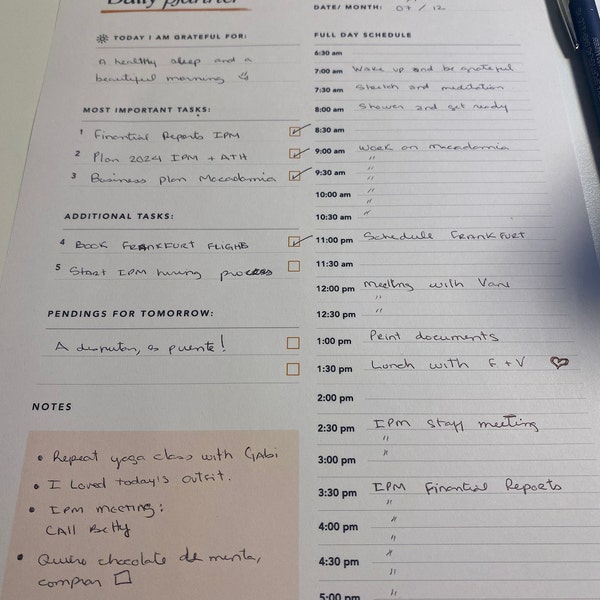 Daily planner
DATE/ MONTH: 07 / 12
TODAY I AM GRATEFUL FOR:
A healthy sleep and a
beautiful morning
MOST IMPORTANT TASKS:
1 Financial Reports IPM
2 Plan 2024 IPM + ATH
3 Business plan Macadamia
ADDITIONAL TASKS:
4 BOOK FRANKFURT FLIGHS
5 Start IPM hiring process
PENDINGS FOR TOMORROW:
A disfrutar, es puente!
NOTES
• Repeat yoga class with Gabi
• I Loved today's outfit.
• IPM MEETING:
CALL Betty
• Quiero chocolate de menta,
comprar
FULL DAY SCHEDULE
6:30 am
7:00 am Wake up and be grateful
7:30 am Stretch and meditation
8:00 am Shower and get ready
8:30 am
9:00 am Work on macadamia
"
9:30 am "
"
10:00 am "
"
10:30 am "
11:00 pm Schedule FRANKFURT
11:30 am
12:00 pm meeting with Vans
"
12:30 pm "
1:00 pm Print documents
1:30 pm Lunch with F + V
2:00 pm
2:30 pm IPM Staff meeting
"
3:00 pm "
3:30 pm IPM Financial Reports
"
4:00 pm "
"
4:30 pm "
"
5:00 pm "